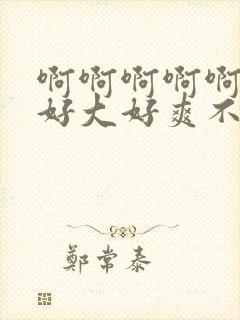 啊啊啊啊啊
好大好爽不
鄭常泰